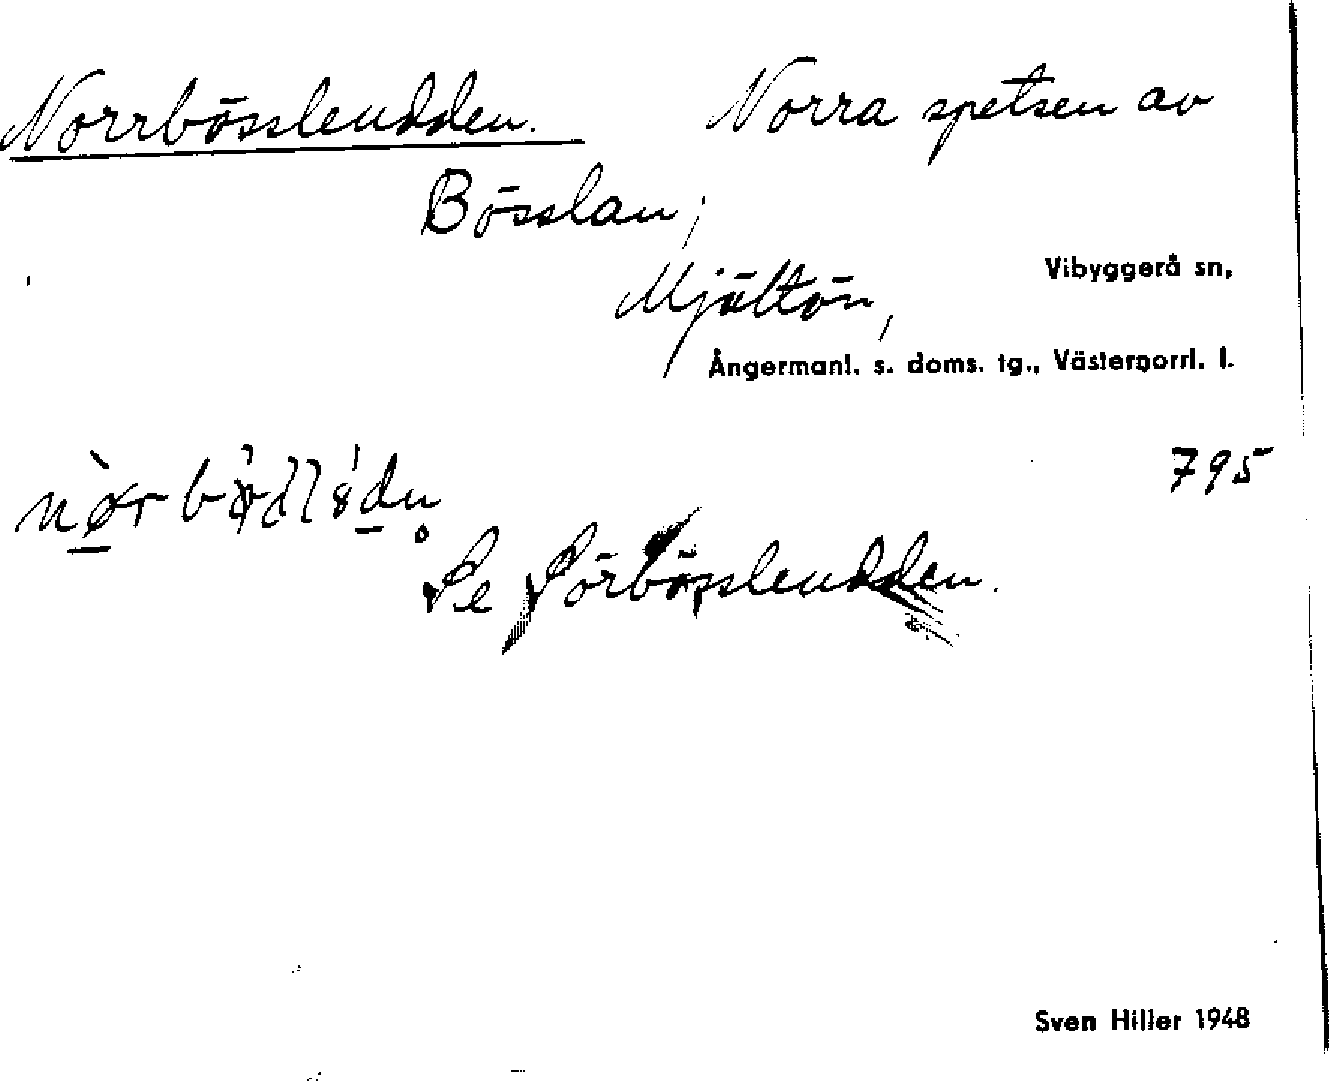 Norrbössleudden. Norra spetsen av
Bösslan,
Mjältön,
Vibyggerå sn,
Ångermanl. s. doms. tg., Västernorrl. l.
795
Se Sörbössleudden.
Sven Hiller 1948